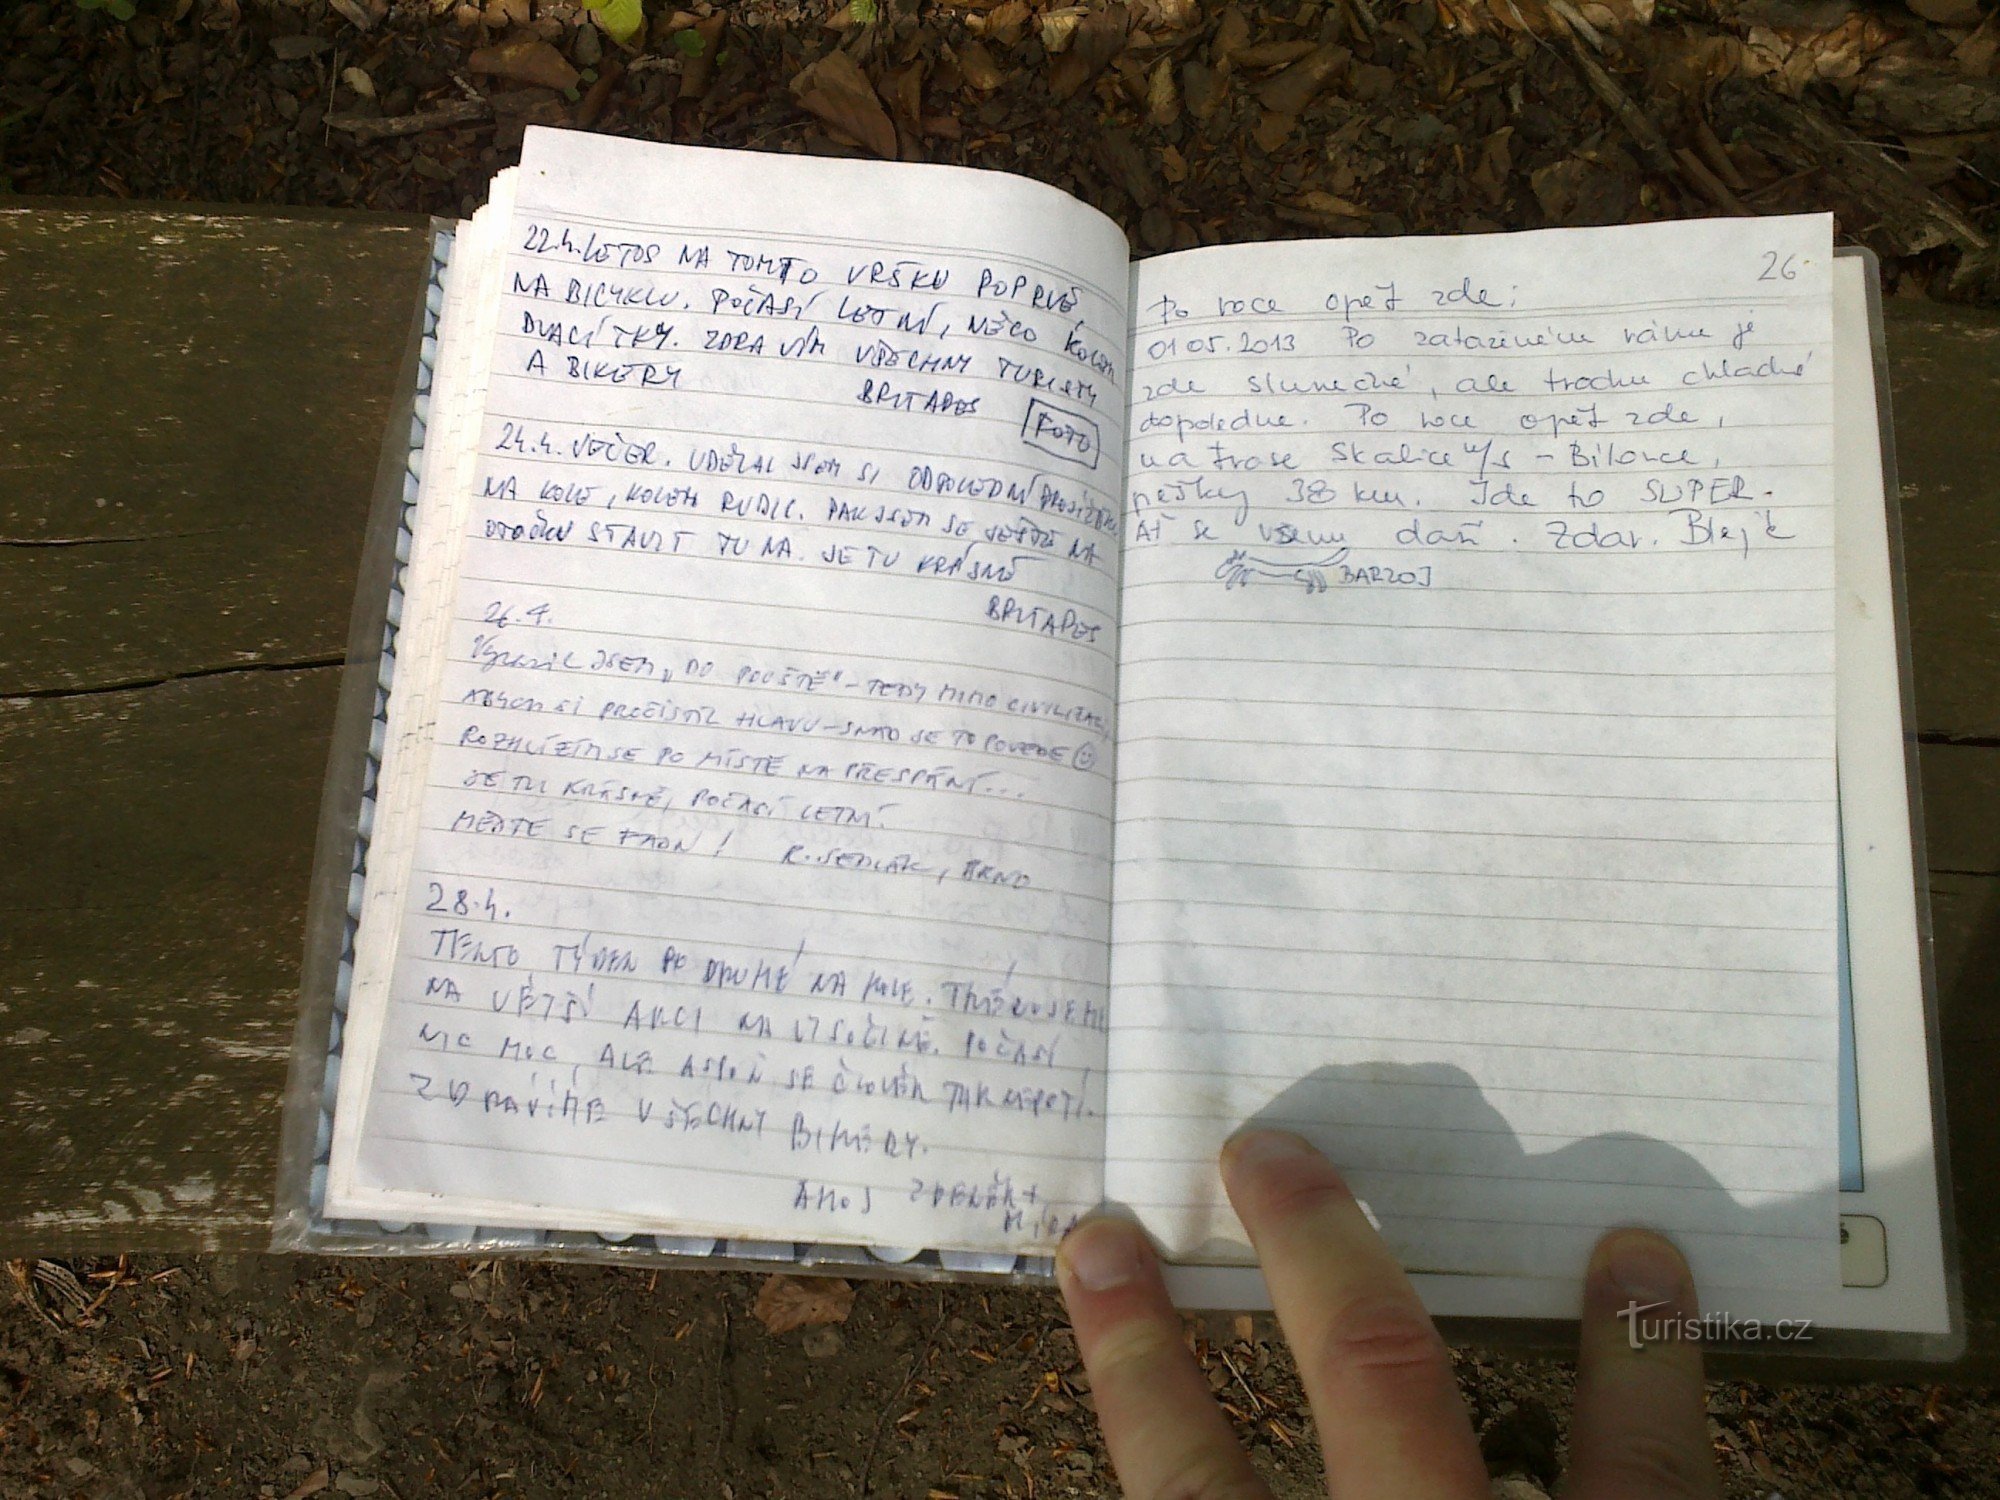 22.4. LETOS NA TOMTO VRŠKU POPRVÉ,
NA BICYKLU. POČASÍ LETNÍ, NĚCO KOLEM
DVACÍTKY. ZDRAVÍM VŠECHNY TURISTY
A BIKERY BRITAPES
FOTO
24.4. VEČER. UDĚLAL JSEM SI ODPOLEDNÍ PROJÍŽĎKU
NA KOLE, KOLEM RUDIC. PAK JSEM SE JEŠTĚ NA
OTOČKU STAVIT TU NA. JE TU KRÁSNĚ
BRITAPES
26.4.
Vyrazil JSEM "DO POUŠTĚ" - TEDY MIMO CIVILIZACI,
ABYCH SI PROČISTIL HLAVU - SNAD SE TO POVEDE
ROZHLÍŽÍM SE PO MÍSTĚ NA PŘESPÁNÍ...
JE TU KRÁSNĚ, POČASÍ LETNÍ.
MĚJTE SE FAJN! R. SEDLÁK, BRNO
28.4.
TENTO TÝDEN PO DRUHÉ NA KOLE. TRÉNUJEME
NA VĚTŠÍ AKCI NA VYSOČINĚ. POČASÍ
NIC MOC, ALE ASPOŇ SE ČLOVĚK TAK NEPOTÍ.
ZDRAVÍME VŠECHNY BIKERY.
AHOJ ZDENĚK +
MÍRA
26
Po roce opět zde:
01 05. 2013 Po zataženém ránu je
zde slunečně, ale trochu chladné
dopoledne. Po roce opět zde,
na trase Skalice n/S - Bílovice,
pěšky 38 km. Jde to SUPER.
Ať se všemu daří. Zdar. Blejč
BARZOJ
Turistika.cz